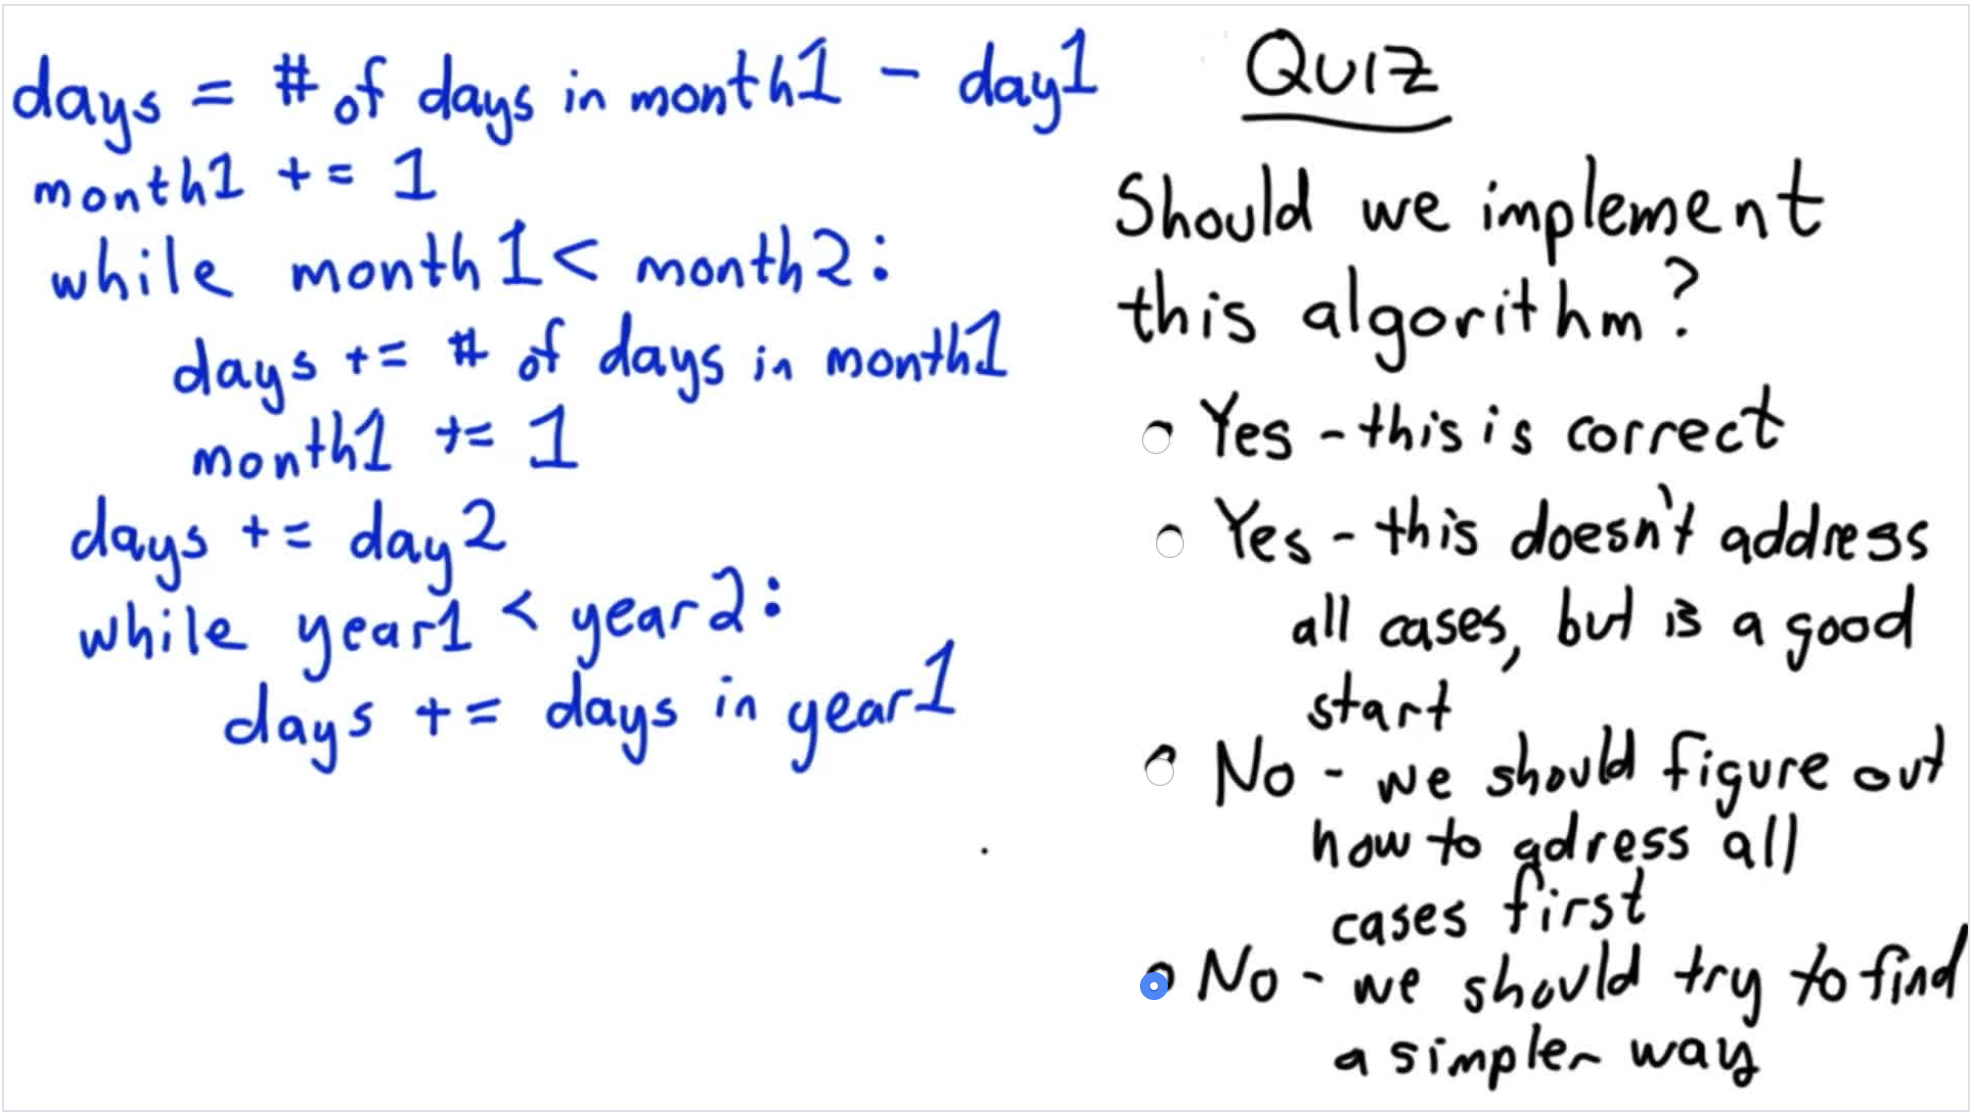 days = # of days in month1 - day1
month1 += 1
while month1 < month2:
days += # of days in month1
month1 += 1
days += day2
while year1 < year2:
days += days in year1
Quiz
Should we implement
this algorithm?
Yes - this is correct
Yes - this doesn't address
all cases, but is a good
start
No - we should figure out
how to adress all
cases first
No - we should try to find
a simpler way